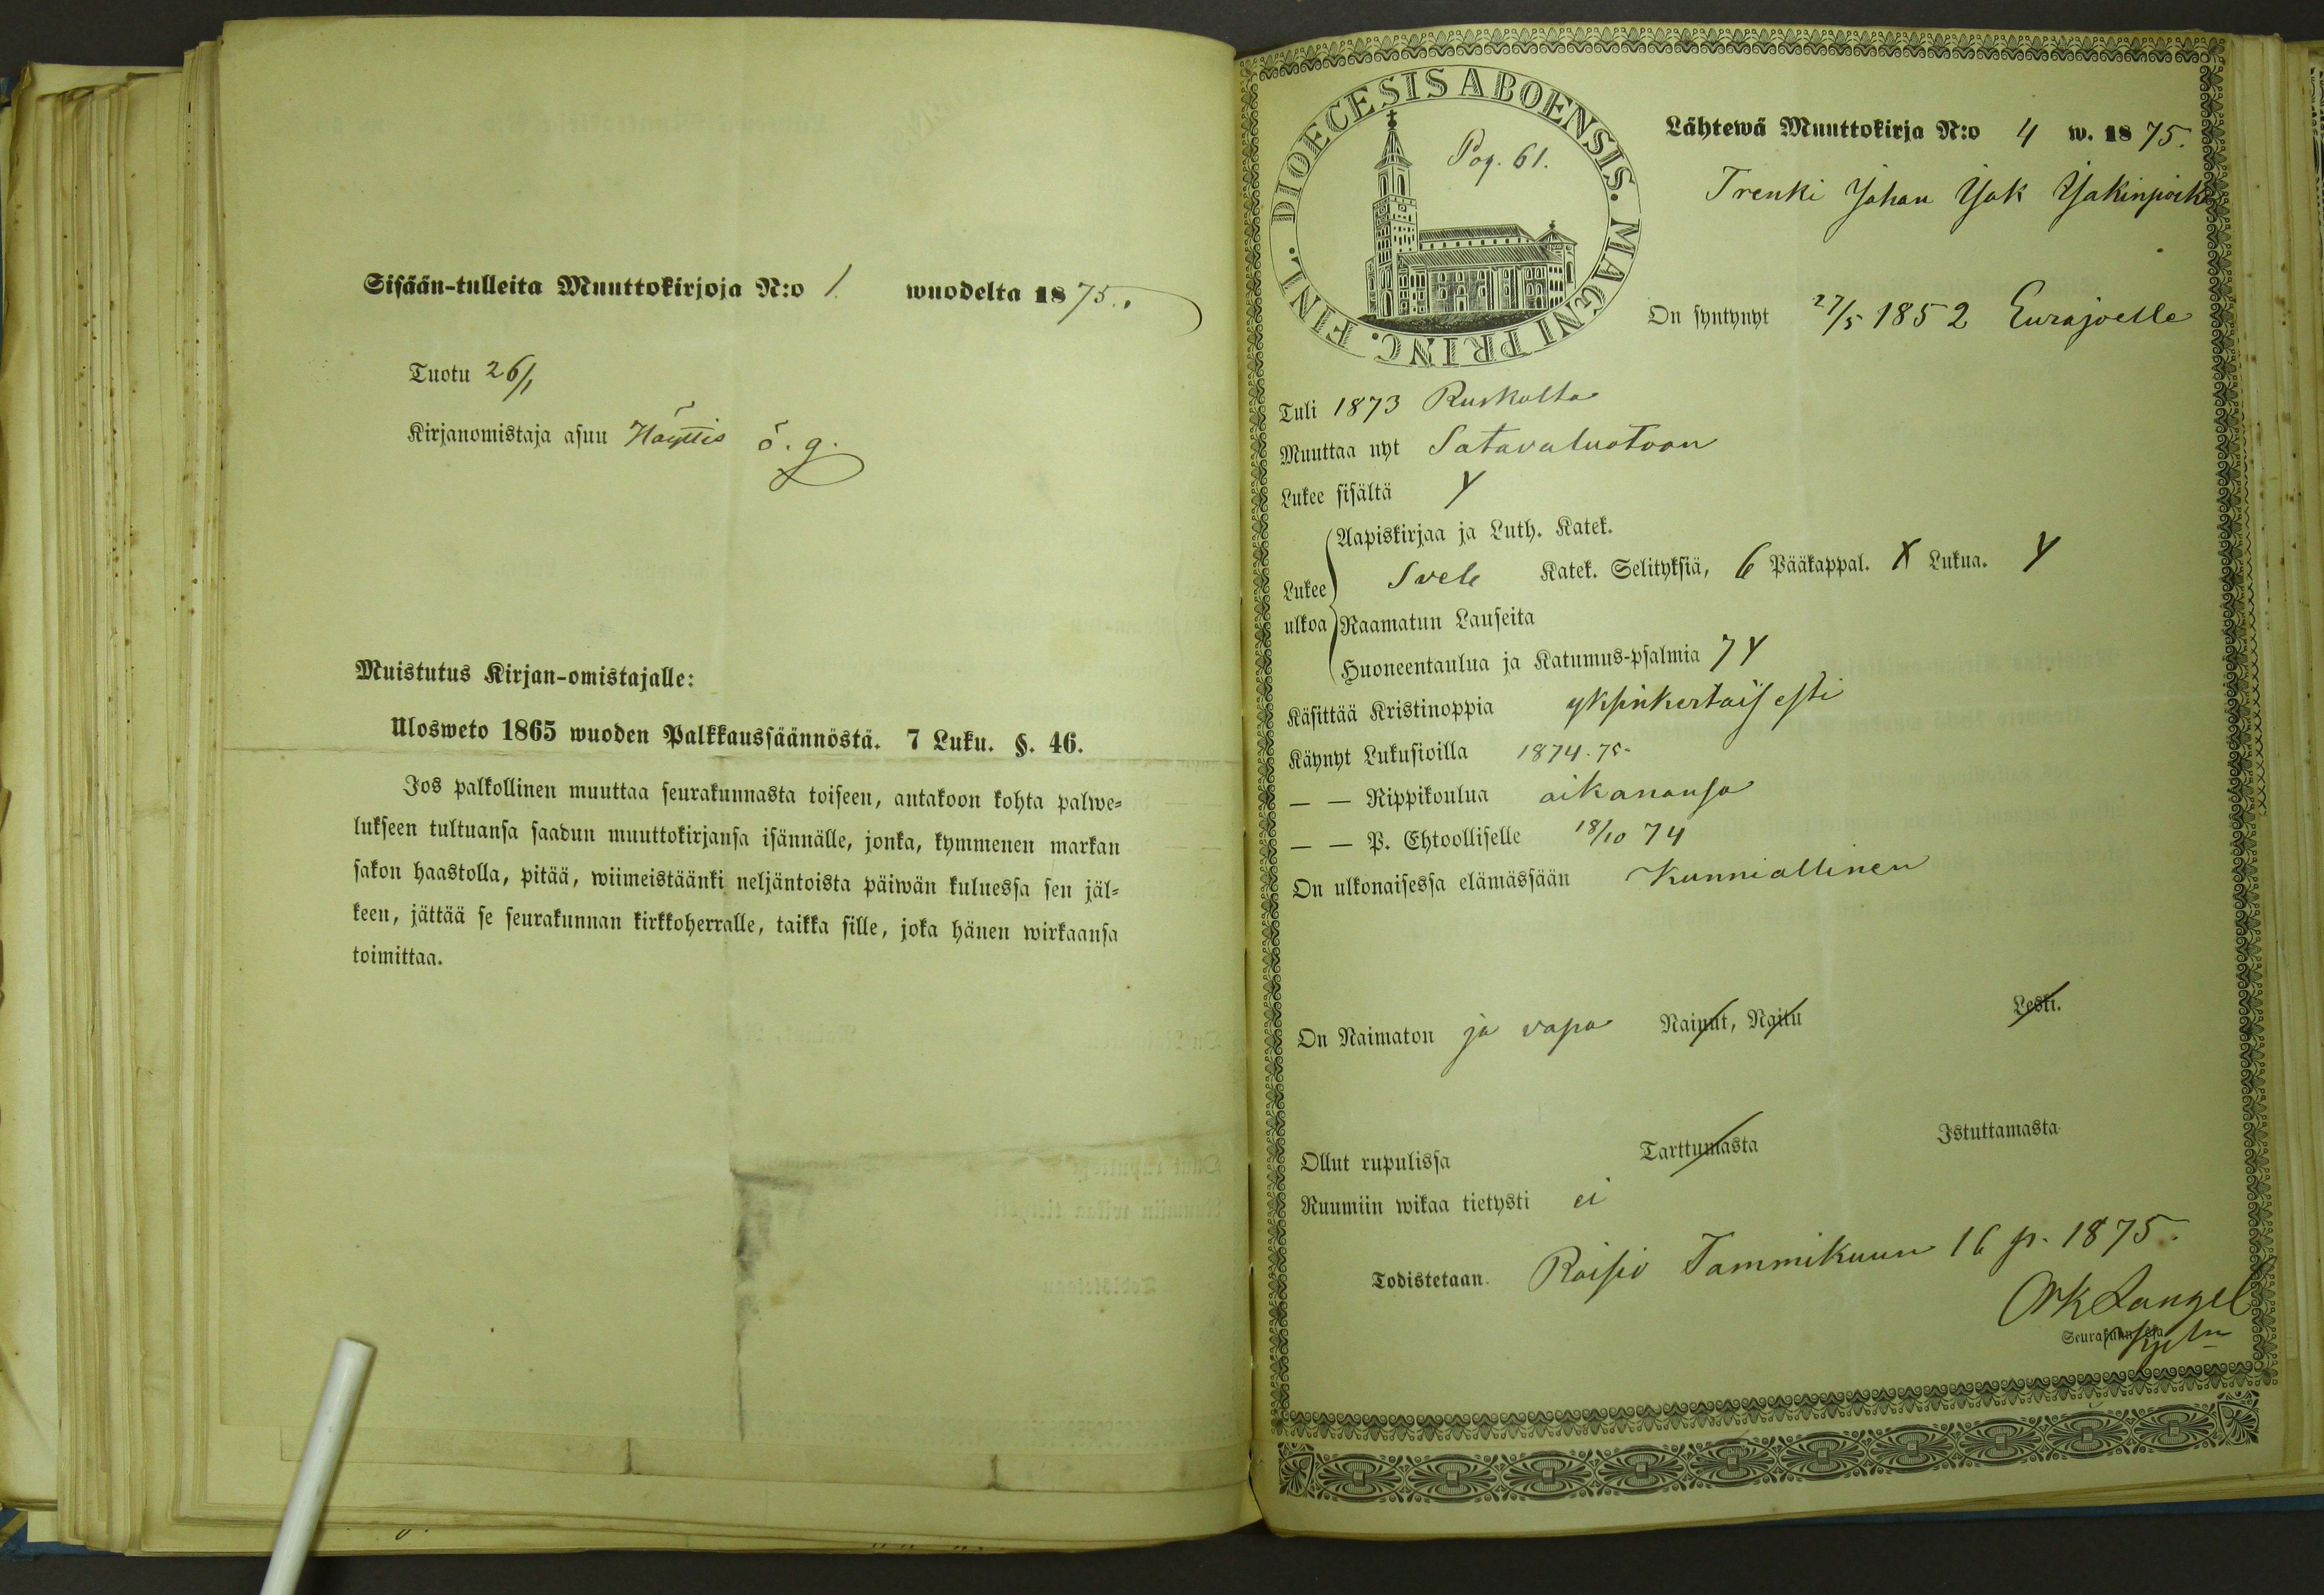 Sisään-tulleita Muuttokirjoja N:o 1. wuodelta 1875.
Tuotu 26/1
Kirjanomistaja asuu Häyttis ö. g.
Muistutus Kirjan-omistajalle:
Ulosweto 1865 wuoden Palkkaussäännöstä. 7 Luku. §. 46.
Jos palkollinen muuttaa seurakunnasta toiseen, antakoon kohta palwe-
lukseen tultuansa saadun muuttokirjansa isännälle, jonka, kymmenen markan
sakon haastolla, pitää, wiimeistäänki neljäntoista päiwän kuluessa sen jäl-
keen, jättää se seurakunnan kirkkoherralle, taikka sille, joka hänen wirkaansa
toimittaa.
DIOECESIS ABOENSIS. MAGNI PRINC. FINL.
Pag. 61.
Lähtewä Muuttokirja N:o 4 w. 1875.
Trenki Johan Isak Isakinpoik
On syntynyt 27/5 1852 Eurajoella
Tuli 1873 Ruskolta
Muuttaa nyt Satavaluotoon
Lukee sisältä
Aapiskirjaa ja Luth. Katek.
Lukee Svebe Katek. Selityksiä, 6 Pääkappal. X Lukua.
ulkoa Raamatun Lauseita
Huoneentaulua ja Katumus-psalmia 7
Käsittää Kristinoppia yksinkertaisesti
Käynyt Lukusioilla 1874. 75.
— — Rippikoulua aikanansa
— — P. Ehtoolliselle 18/10 74
On ulkonaisessa elämässään Kunniallinen
On Naimaton ja vapa Nainut, Naitu Leski.
Ollut rupulissa Tarttumasta Istuttamasta
Ruumiin wikaa tietysti ei
Todistetaan. Raisio Tammikuun 16 p. 1875.
Langel
Seurakunnassa